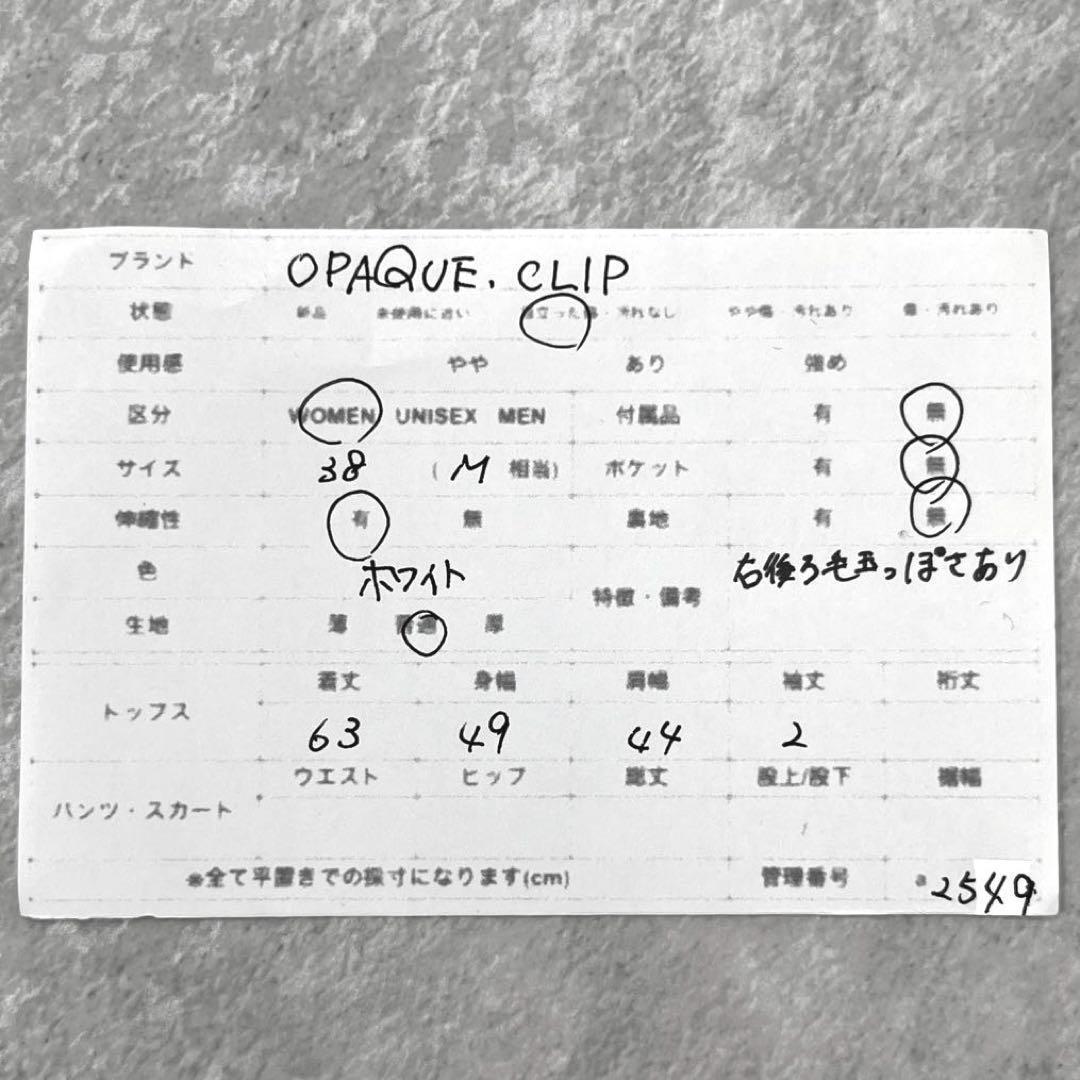 ブランド OPAQUE.CLIP
状態 新品 未使用に近い 目立った傷・汚れなし やや傷・汚れあり 傷・汚れあり
使用感 やや あり 強め
区分 WOMEN UNISEX MEN 付属品 有 無
サイズ 38 (M 相当) ポケット 有 無
伸縮性 有 無 裏地 有 無
色 ホワイト 特徴・備考 右後ろ毛玉っぽさあり
生地 薄 普通 厚
トップス 着丈 身幅 肩幅 袖丈 裄丈
63 49 44 2
パンツ・スカート ウエスト ヒップ 総丈 股上/股下 裾幅
※全て平置きでの採寸になります(cm) 管理番号 a 2549